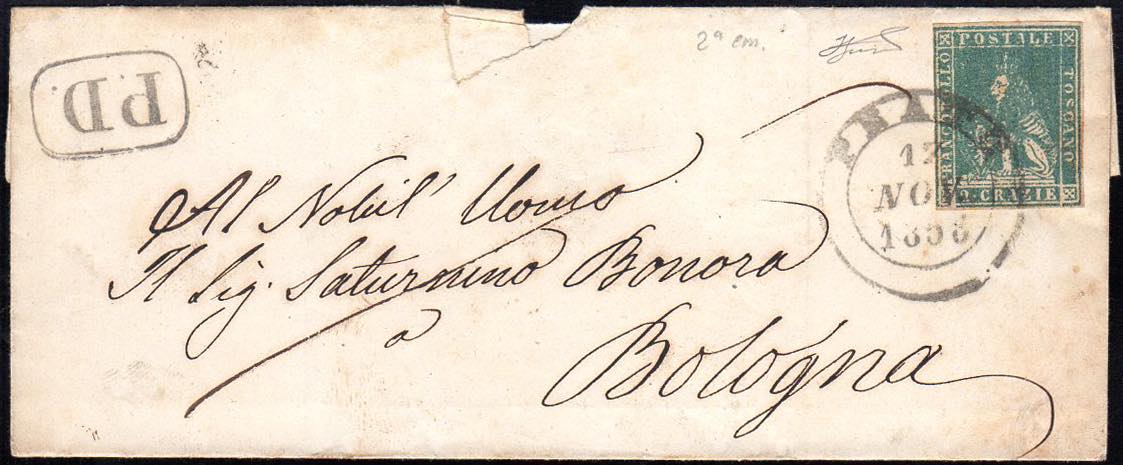 P.D.
2ª em.
FRANCOBOLLO
POSTALE
TOSCANO
2. CRAZIE
NOV.
Al Nobil' Uomo
Il Sig. Saturnino Bonora
a
Bologna